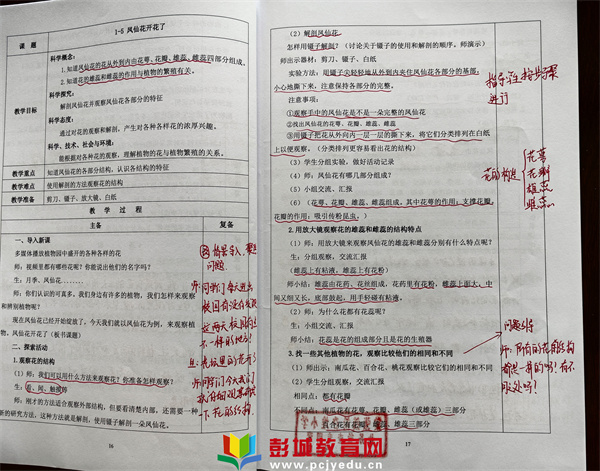 1-5 凤仙花开花了
课 题
科学概念：
1.知道凤仙花的花从外到内由花萼、花瓣、雄蕊、雌蕊四部分组成。
2.知道花的雄蕊和雌蕊的作用与植物繁殖有关。
科学探究：
解剖凤仙花并观察凤仙花各部分的特征
教学目标
科学态度：
通过对花的观察和解剖，产生对各种各样花的浓厚兴趣。
科学、技术、社会与环境：
能根据对各种花的观察，理解植物的花与植物繁殖的关系。
教学重点 知道凤仙花的各部分结构，认识各结构的特征
教学难点 使用解剖的方法观察花的结构
教学准备 剪刀、镊子、放大镜、白纸
教 学 过 程
主备 复备
一、导入新课
多媒体播放植物园中盛开的各种各样的花
师：视频里都有哪些花呢？你能说出他们的名字吗？
生：月季、凤仙花……
师：你们认识的可真多，我们身边有许多的植物，我们怎样来观察
和辨别植物呢？
现在凤仙花已经开始绽放了，今天我们就以凤仙花为例，来观察植
物。凤仙花开花了（板书课题）
二、探索活动
1.观察花的结构
（1）师：我们可以用什么方法来观察花？你准备怎样观察？
生：看、闻、触摸等
师：刚才的方法适合观察外部结构，但要看清楚内部，还需要一种
新的研究方法，这种方法就是解剖，使用镊子解剖一朵凤仙花。
问题。
16
（2）解剖凤仙花
怎样用镊子解剖？（讨论关于镊子的使用和解剖的顺序，师演示）
师出示器材：剪刀、镊子、白纸
实验方法：用镊子尖轻轻地从外到内夹住凤仙花各部分的基部，
小心地撕下来，注意保持各部分的完整。
注意事项：
①观察手中的凤仙花是不是一朵完整的凤仙花
②找出凤仙花的花萼、花瓣、雄蕊、雌蕊
③用镊子把花从外向内一层一层的撕下来，将它们分类排列在白纸
上以便观察。（分类排列更容易看出花的结构）
（3）学生分组实验，做好活动记录
（4）师：凤仙花有哪几部分组成？
（5）小组交流、汇报
（6）花萼、花瓣、雄蕊、雌蕊组成，其中花萼的作用：支撑花瓣，
花瓣的作用：吸引传粉昆虫。）
2.用放大镜观察花的雄蕊和雌蕊的结构特点
（1）师：用放大镜来观察凤仙花的雄蕊和雌蕊分别有什么特点呢？
生：分组观察，交流汇报
（雌蕊上有粘液，雄蕊上有花粉）
师小结：雄蕊由花药、花丝组成，花药里有花粉，雌蕊上面大、中
间又细又长，底部鼓起，用手轻碰有粘液。
（2）师：为什么花都有花蕊呢？
生：小组交流、汇报
师小结：花蕊是花的组成部分且是花的生殖器
3.找一些其他植物的花，观察比较他们的相同和不同
（1）师：出示南瓜花、百合花、桃花观察比较它们的相同和不同
（2）生：小组交流，汇报
相同点：都有花瓣
不同点：南瓜花有花萼、花瓣、雌蕊（或雄蕊）三部分
百合花有花瓣、雄蕊、雌蕊三部分
17
进行
花的构造
花萼
花瓣
雄蕊
雌蕊
彭城教育网
www.pcjyedu.cn